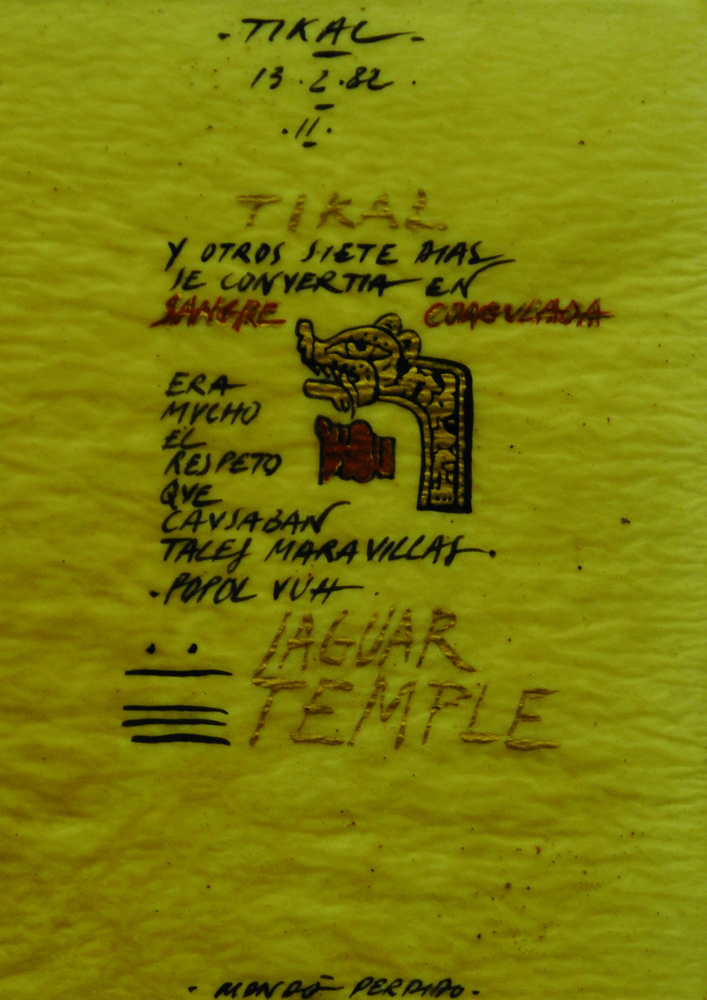 .TIKAL.
13.2.82.
.II.
TIKAL
Y OTROS SIETE DIAS
SE CONVERTIA EN
SANGRE COAGULADA
ERA
MUCHO
EL
RESPETO
QUE
CAUSABAN
TALES MARAVILLAS.
.POPOL VUH.
JAGUAR
TEMPLE
.MONDO PERDIDO.